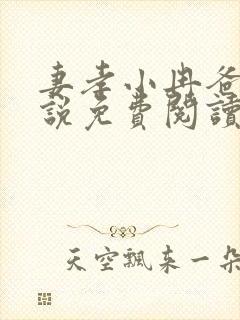 妻孝小冉爸
說免費閱讀
天空飄来一朵